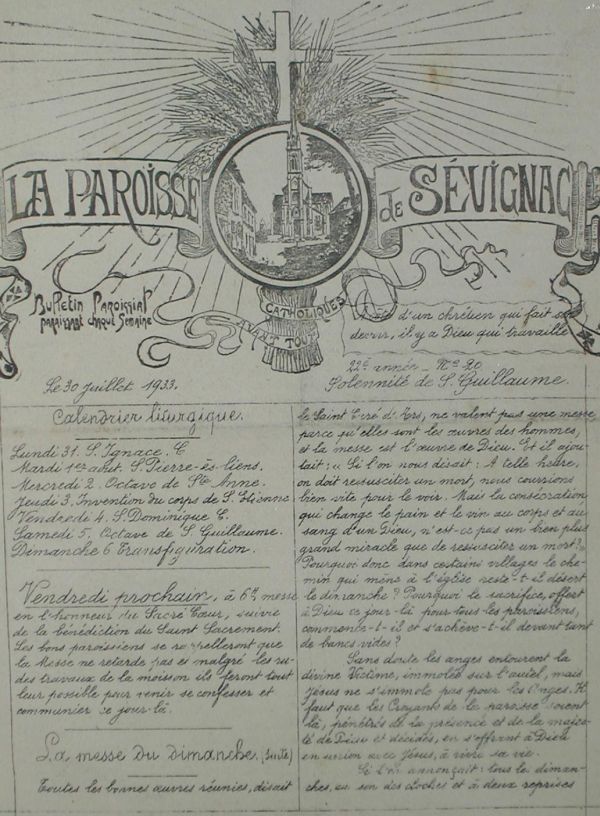 LA PAROISSE de SÉVIGNAC
Bulletin Paroissial
paraissant chaque Semaine
CATHOLIQUES
AVANT TOUT
d'un chrétien qui fait son
devoir, il y a Dieu qui travaille
22e année - No 20
Le 30 Juillet 1933.
Solennité de S. Guillaume.
Calendrier liturgique.
Lundi 31. S. Ignace. C
Mardi 1er août. S. Pierre-ès-liens.
Mercredi 2. Octave de Ste Anne.
Jeudi 3. Invention du corps de S. Etienne.
Vendredi 4. S. Dominique C.
Samedi 5. Octave de S. Guillaume.
Dimanche 6. Transfiguration.
Vendredi prochain, à 6h messe
en l'honneur du Sacré Cœur, suivie
de la bénédiction du Saint Sacrement.
Les bons paroissiens se rappelleront que
la Messe ne retarde pas et malgré les ru-
des travaux de la moisson ils feront tout
leur possible pour venir se confesser et
communier ce jour-là.
La messe du Dimanche. (suite)
Toutes les bonnes œuvres réunies, disait
le Saint Curé d'Ars, ne valent pas une messe
parce qu'elles sont les œuvres des hommes,
et la messe est l'œuvre de Dieu. Et il ajou-
tait: "Si l'on nous disait: A telle heure,
on doit ressusciter un mort, nous courrions
bien vite pour le voir. Mais la consécration
qui change le pain et le vin au corps et au
sang d'un Dieu, n'est-ce pas un bien plus
grand miracle que de ressusciter un mort?"
Pourquoi donc dans certains villages le che-
min qui mène à l'église reste-t-il désert
le dimanche? Pourquoi le sacrifice, offert
à Dieu ce jour-là pour tous les paroissiens,
commence-t-il et s'achève-t-il devant tant
de bancs vides?
Sans doute les anges entourent la
divine Victime, immolée sur l'autel, mais
Jésus ne s'immole pas pour les Anges. Il
faut que les Croyants de la paroisse soient
là, pénétrés de la présence et de la majes-
té de Dieu et décidés, en s'offrant à Dieu
en union avec Jésus, à vivre sa vie.
Si l'on annonçait: tous les diman-
ches, au son des cloches et à deux reprises